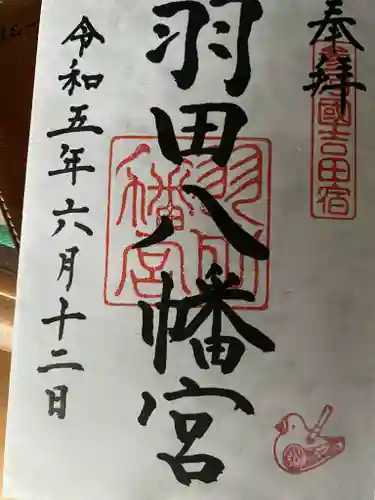 奉拝
國吉田宿
羽田八幡宮
令和五年六月十二日